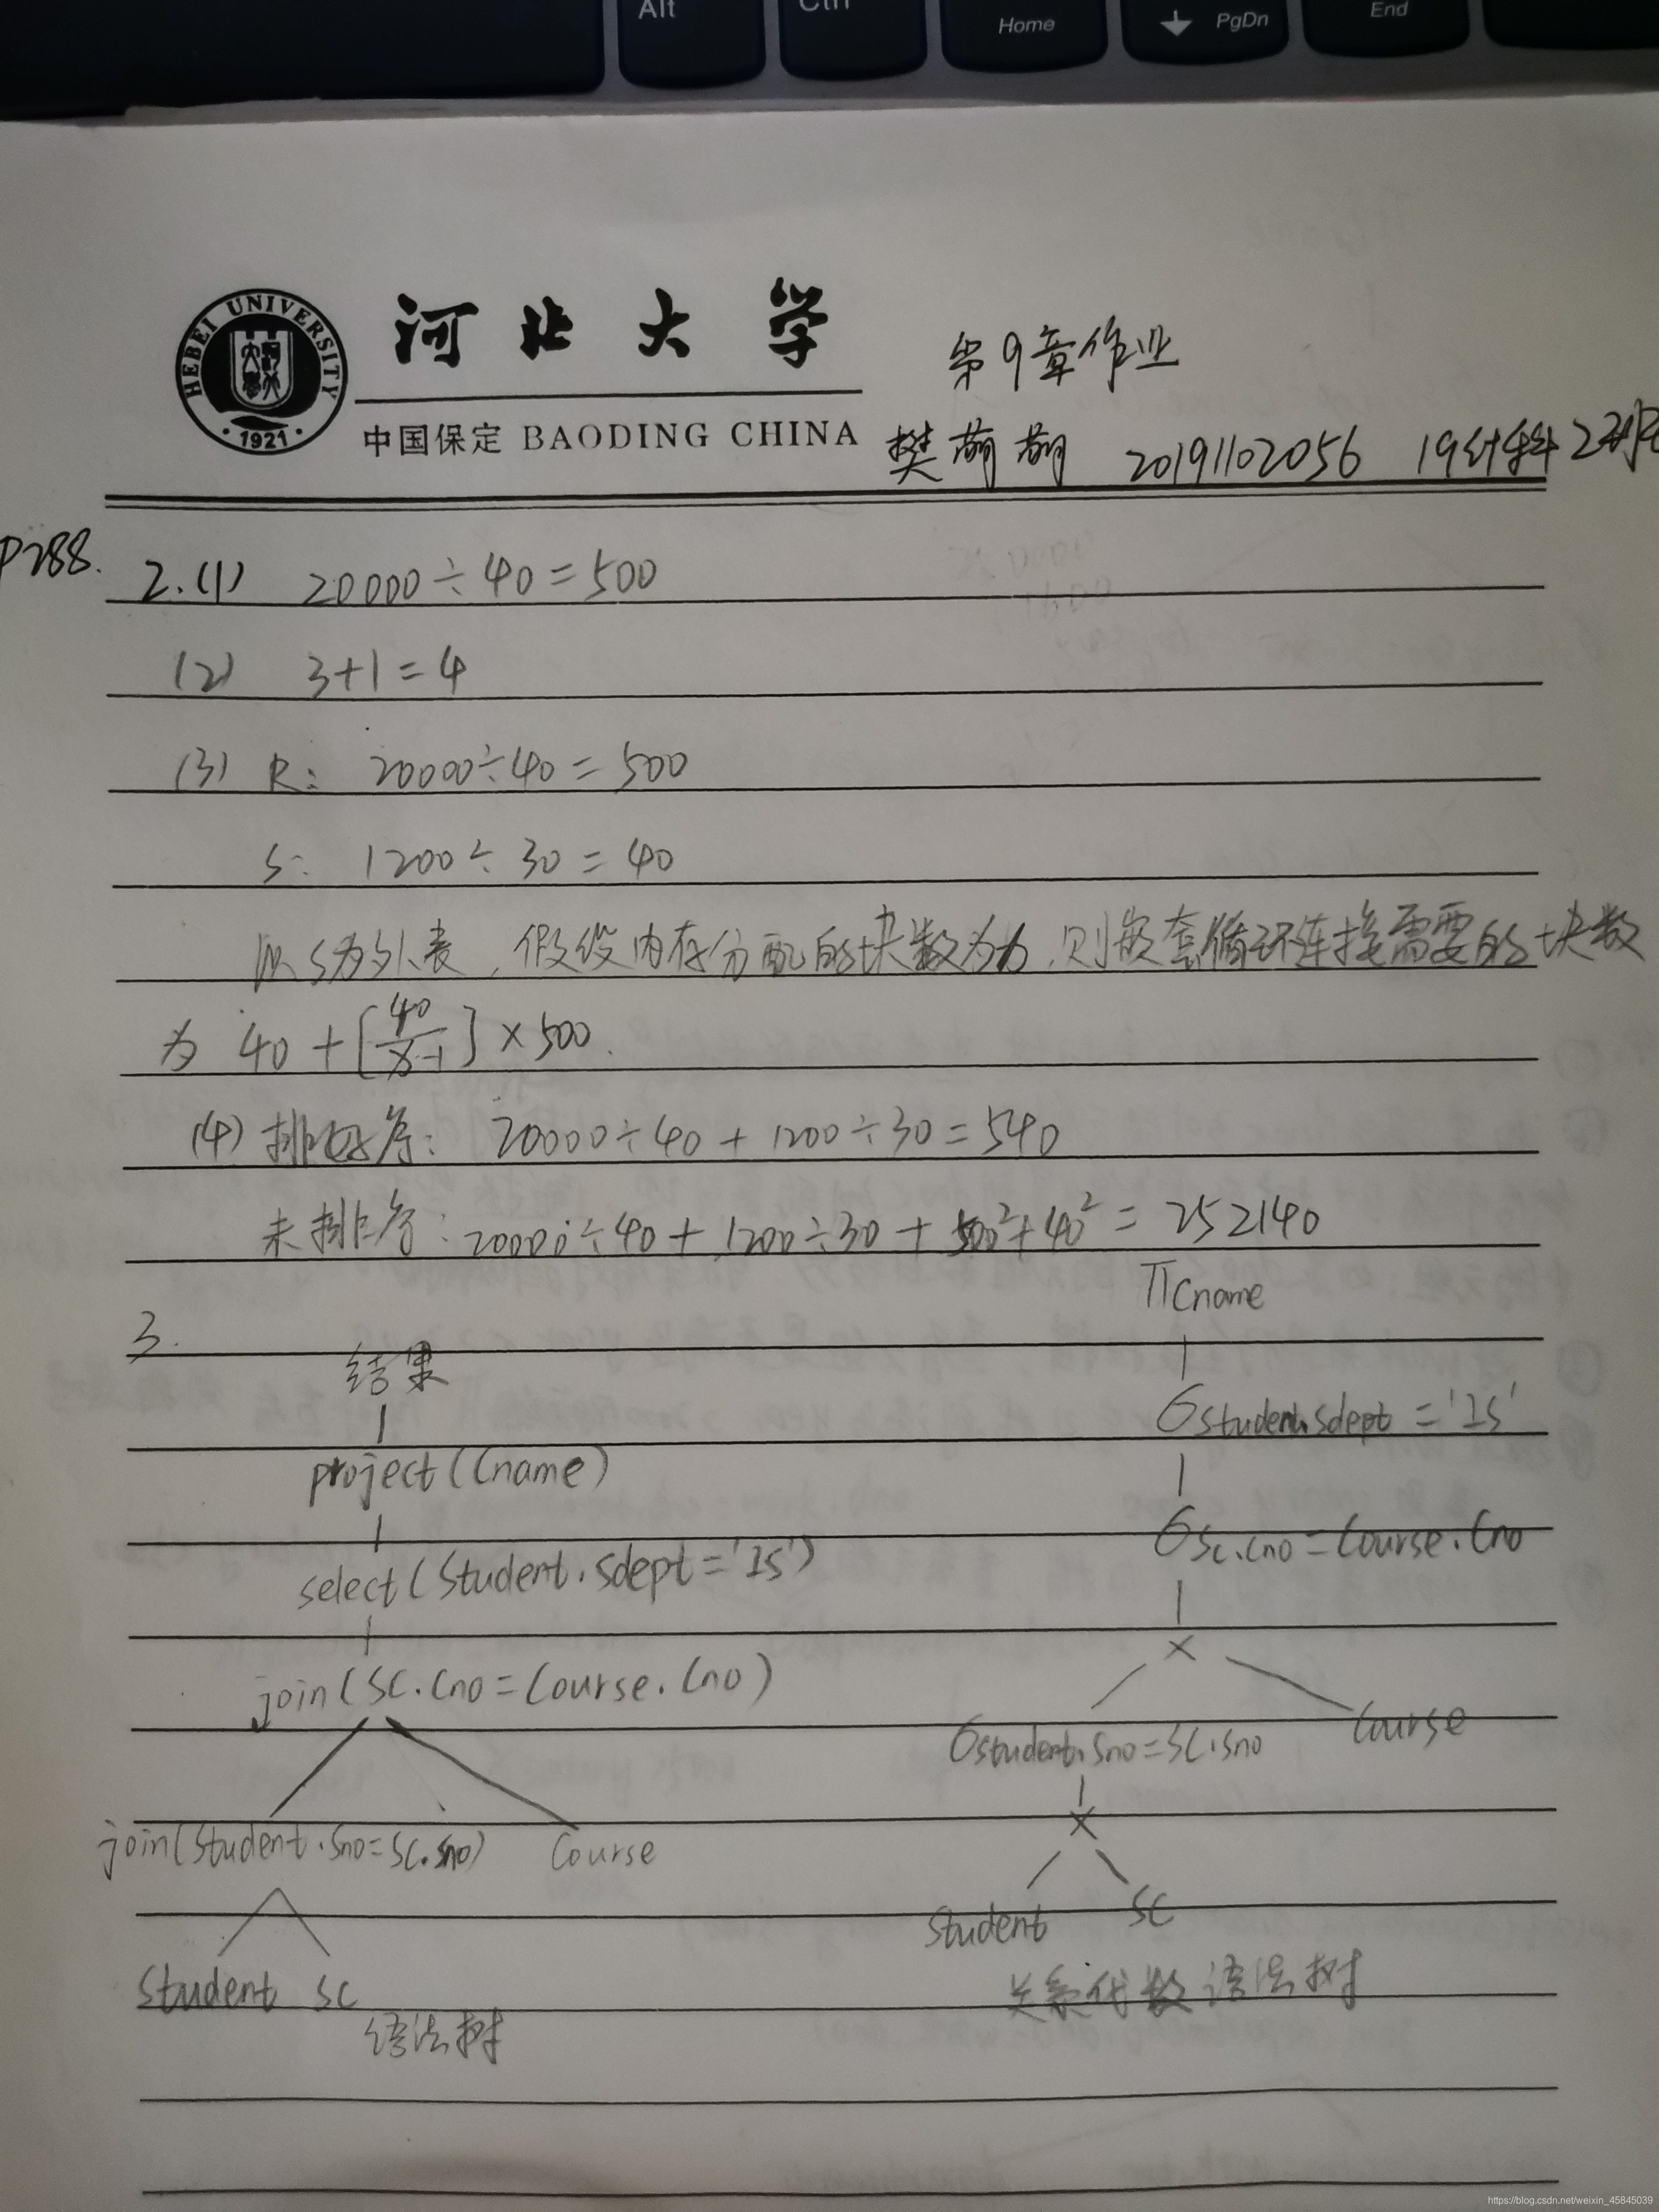 Alt
Ctrl
Home
PgDn
End
HEBEI UNIVERSITY
1921
河北大学
中国保定 BAODING CHINA
第9章作业
樊萌萌 20191102056 19计科2班
P288.
2.(1) 20000÷40=500
(2) 3+1=4
(3) R: 20000÷40=500
S: 1200÷30=40
以S为外表,假设内存分配的块数为b,则嵌套循环连接需要的块数
为 40+[40/b-1]×500.
(4) 排好序: 20000÷40+1200÷30=540
未排序: 20000÷40+1200÷30+500²+40²=252140
3.
结果
project(Cname)
select(Student.sdept='IS')
join(SC.Cno=Course.Cno)
join(Student.Sno=SC.Sno) Course
Student SC
语法树
πCname
σStudent.sdept='IS'
σSC.Cno=Course.Cno
×
σStudent.Sno=SC.Sno Course
×
Student SC
关系代数语法树
https://blog.csdn.net/weixin_45845039